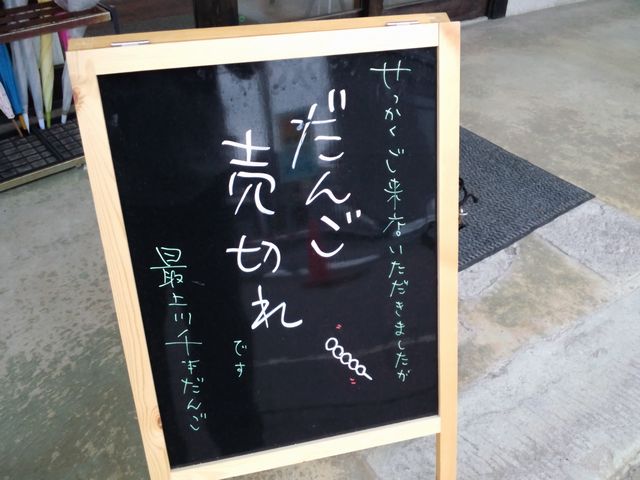 せっかくご来店いただきましたが
だんご
売切れ
です
最上川千本だんご